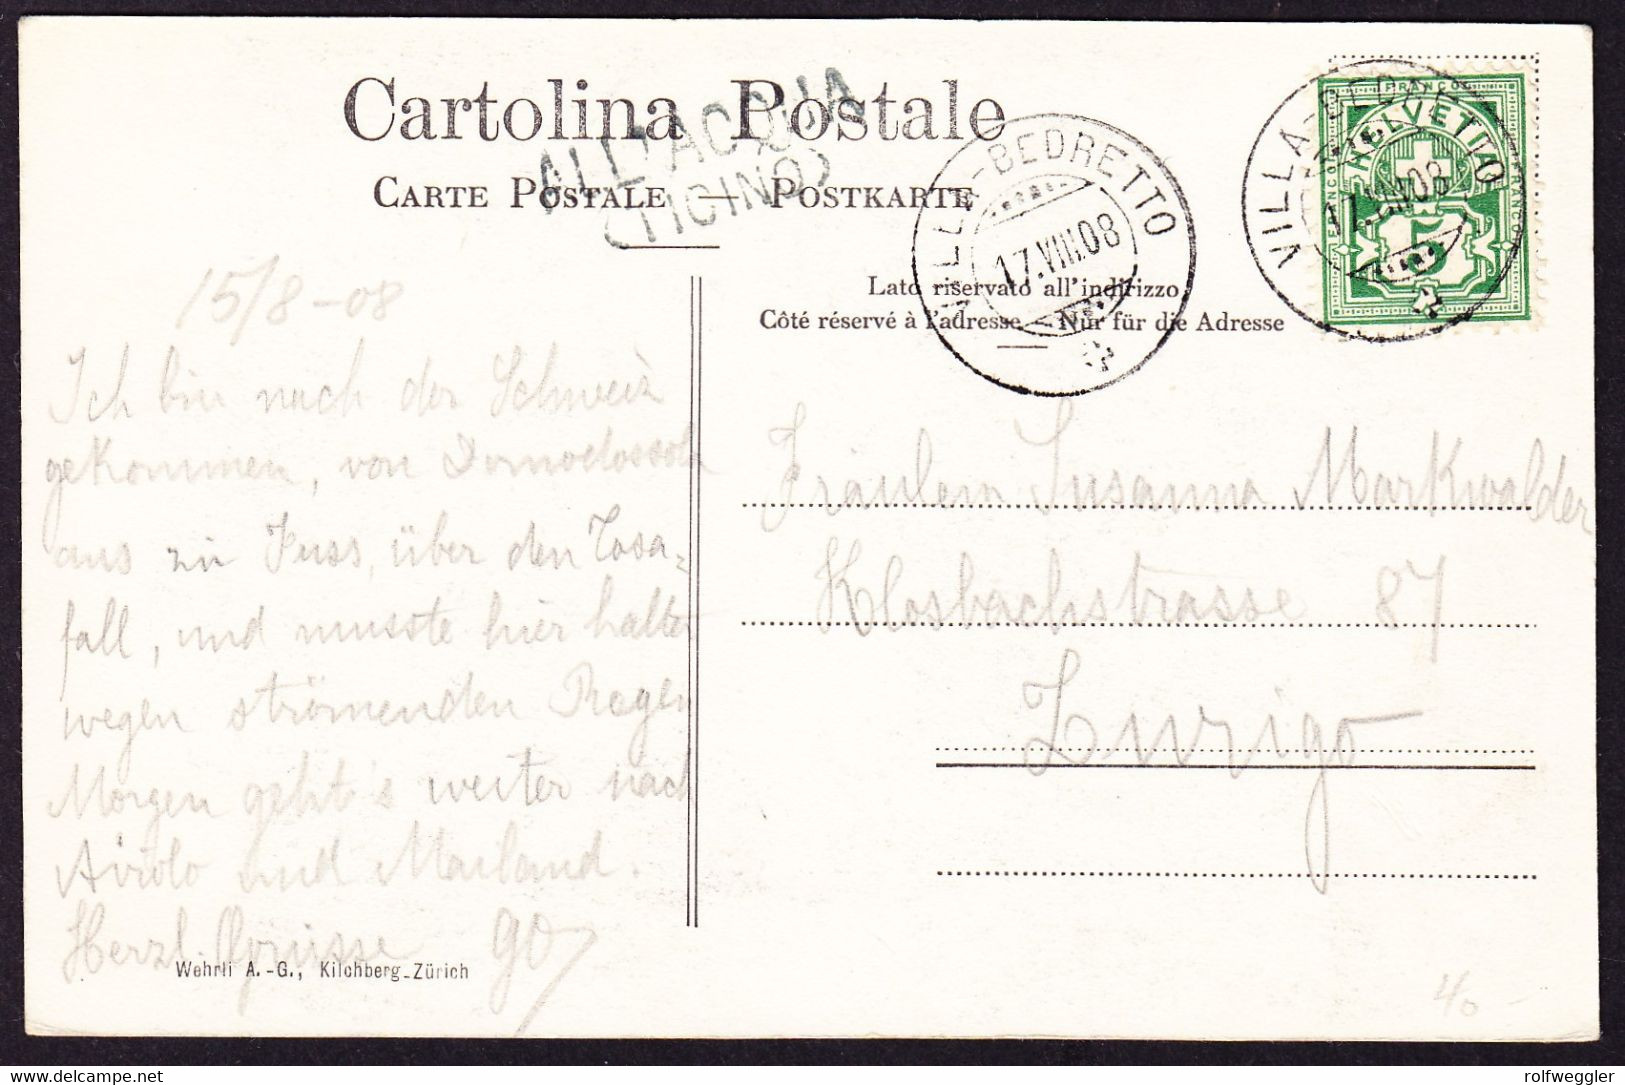 Cartolina Postale
CARTE POSTALE — POSTKARTE
ALL'ACQUA
(TICINO)
VILLA-BEDRETTO
17.VIII.08
VILLA-BEDRETTO
17.VIII.08
FRANCO
HELVETIA
FRANCO
FRANCO
5
Lato riservato all'indirizzo
Côté réservé à l'adresse — Nur für die Adresse
15/8-08
Ich bin nach der Schweiz
gekommen, von Domodossola
aus zu Fuss, über den Tosa-
fall, und musste hier halten
wegen strömenden Regen
Morgen geht's weiter nach
Airolo und Mailand.
Herzl. Grüsse
Fräulein Susanna Markwalder
Klosbachstrasse 87
Zurigo
Wehrli A.-G., Kilchberg-Zürich
40 -
rolfweggler